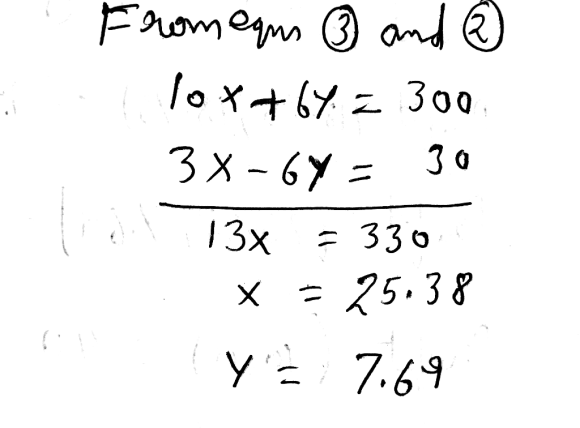 From eqn ③ and ②
10x+6y = 300
3x-6y = 30
13x = 330
x = 25.38
y = 7.69